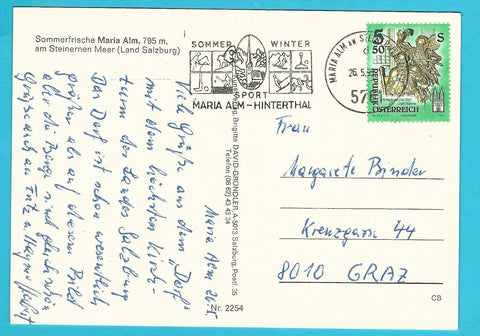 Sommerfrische Maria Alm, 795 m,
am Steinernen Meer (Land Salzburg)
SOMMER WINTER
SPORT
MARIA ALM - HINTERTHAL
MARIA ALM AM
26.5.9
57
5 S
50
REPUBLIK
ÖSTERREICH
Maria Alm 26.5.
Viele Grüße aus dem "Dorf"
mit dem höchsten Kirch-
turm des Landes Salzburg
Das Dorf ist schon wesentlich
größer als auf diesem Bild
aber die Berge sind gleich schön
Grüße auch an Fritz u.
Brigitte DAVID-GRÜNDLER, A-5013 Salzburg, Postf. 35
Telefon (06 62) 43 43 34
Nr. 2254
Frau
Margarete Binder
Kreuzgasse 44
8010 GRAZ
CB